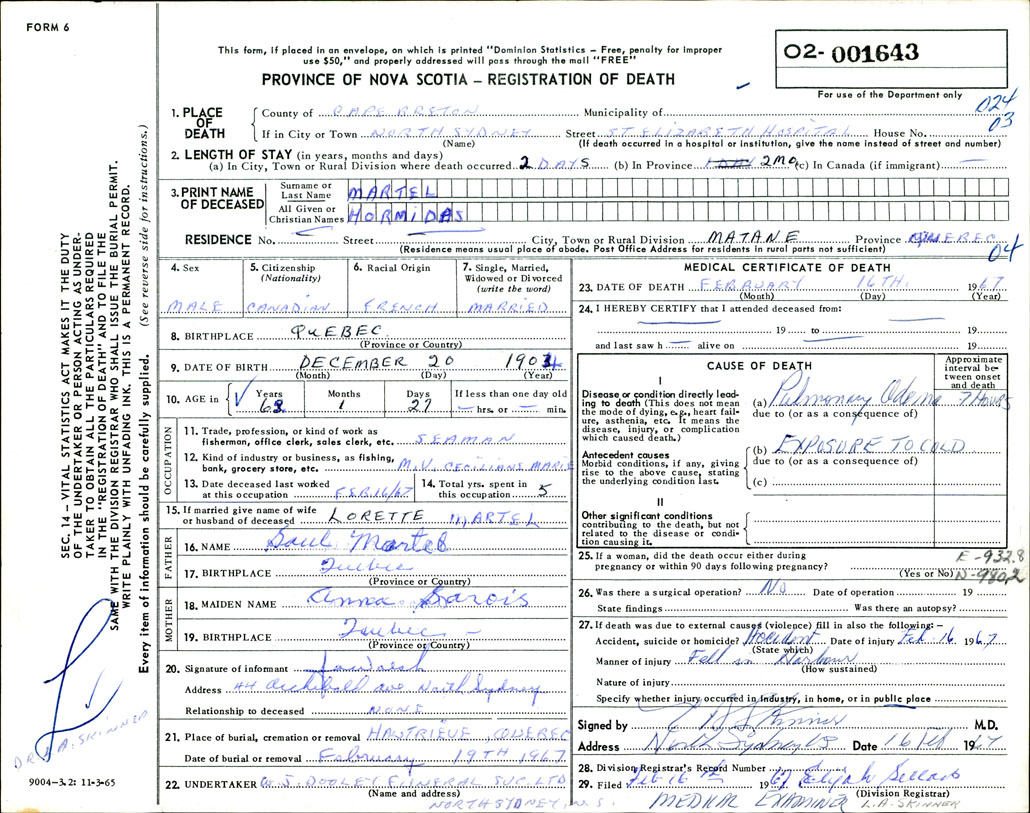 FORM 6
This form, if placed in an envelope, on which is printed "Dominion Statistics – Free, penalty for improper
use $50," and properly addressed will pass through the mail "FREE"
PROVINCE OF NOVA SCOTIA – REGISTRATION OF DEATH
02- 001643
For use of the Department only
024
03
1. PLACE OF DEATH
County of CAPE BRETON Municipality of
If in City or Town NORTH SYDNEY Street ST ELIZABETH HOSPITAL House No.
(Name) (If death occurred in a hospital or institution, give the name instead of street and number)
2. LENGTH OF STAY (in years, months and days)
(a) In City, Town or Rural Division where death occurred 2 DAYS (b) In Province 2 MO (c) In Canada (if immigrant) —
3. PRINT NAME OF DECEASED
Surname or Last Name MARTEL
All Given or Christian Names HORMIDAS
RESIDENCE No. Street City, Town or Rural Division MATANE Province QUEBEC
(Residence means usual place of abode. Post Office Address for residents in rural parts not sufficient)
04
4. Sex MALE
5. Citizenship (Nationality) CANADIAN
6. Racial Origin FRENCH
7. Single, Married, Widowed or Divorced (write the word) MARRIED
8. BIRTHPLACE QUEBEC
(Province or Country)
9. DATE OF BIRTH DECEMBER 20 1904
(Month) (Day) (Year)
10. AGE in Years Months Days If less than one day old
62 1 27 — hrs. or — min.
OCCUPATION
11. Trade, profession, or kind of work as
fisherman, office clerk, sales clerk, etc. SEAMAN
12. Kind of industry or business, as fishing,
bank, grocery store, etc. M.V. CECILIANS MARIE
13. Date deceased last worked
at this occupation FEB 16/67
14. Total yrs. spent in
this occupation 5
15. If married give name of wife
or husband of deceased LORETTE MARTEL
FATHER
16. NAME Saul Martel
17. BIRTHPLACE Quebec
(Province or Country)
MOTHER
18. MAIDEN NAME Anna
19. BIRTHPLACE Quebec –
(Province or Country)
20. Signature of informant
Address 44 Archibald ave North Sydney
Relationship to deceased NONE
21. Place of burial, cremation or removal HAUTRIEVE, QUEBEC
Date of burial or removal February 19TH 1967
22. UNDERTAKER W.S. DOOLEY FUNERAL SVC. LTD
(Name and address)
NORTH SYDNEY, N.S.
MEDICAL CERTIFICATE OF DEATH
23. DATE OF DEATH FEBRUARY 16TH. 1967
(Month) (Day) (Year)
24. I HEREBY CERTIFY that I attended deceased from:
19 to 19
and last saw h — alive on 19
CAUSE OF DEATH
Approximate interval between onset and death
I
Disease or condition directly leading to death (This does not mean the mode of dying, e.g., heart failure, asthenia, etc. It means the disease, injury, or complication which caused death.)
(a) Pulmonary Odema 7 HOURS
due to (or as a consequence of)
Antecedent causes
Morbid conditions, if any, giving rise to the above cause, stating the underlying condition last.
(b) EXPOSURE TO COLD
due to (or as a consequence of)
(c)
II
Other significant conditions
contributing to the death, but not related to the disease or condition causing it.
25. If a woman, did the death occur either during
pregnancy or within 90 days following pregnancy?
(Yes or No)
E-932.8
N-980.2
26. Was there a surgical operation? No Date of operation 19
State findings Was there an autopsy?
27. If death was due to external causes (violence) fill in also the following: –
Accident, suicide or homicide? Accident Date of injury Feb 16 1967
(State which)
Manner of injury Fell in Harbour
(How sustained)
Nature of injury
Specify whether injury occurred in industry, in home, or in public place
Signed by L A Skinner M.D.
Address North Sydney NS Date 16 Feb 1967
28. Division Registrar's Record Number
29. Filed Feb 16 th 1967
(Division Registrar)
MEDICAL EXAMINER L.A. SKINNER
SEC. 14 – VITAL STATISTICS ACT MAKES IT THE DUTY
OF THE UNDERTAKER OR PERSON ACTING AS UNDER-
TAKER TO OBTAIN ALL THE PARTICULARS REQUIRED
IN THE "REGISTRATION OF DEATH" AND TO FILE THE
SAME WITH THE DIVISION REGISTRAR WHO SHALL ISSUE THE BURIAL PERMIT.
WRITE PLAINLY WITH UNFADING INK. THIS IS A PERMANENT RECORD.
Every item of information should be carefully supplied. (See reverse side for instructions.)
DR. L. A. SKINNER
9004-3.2: 11-3-65